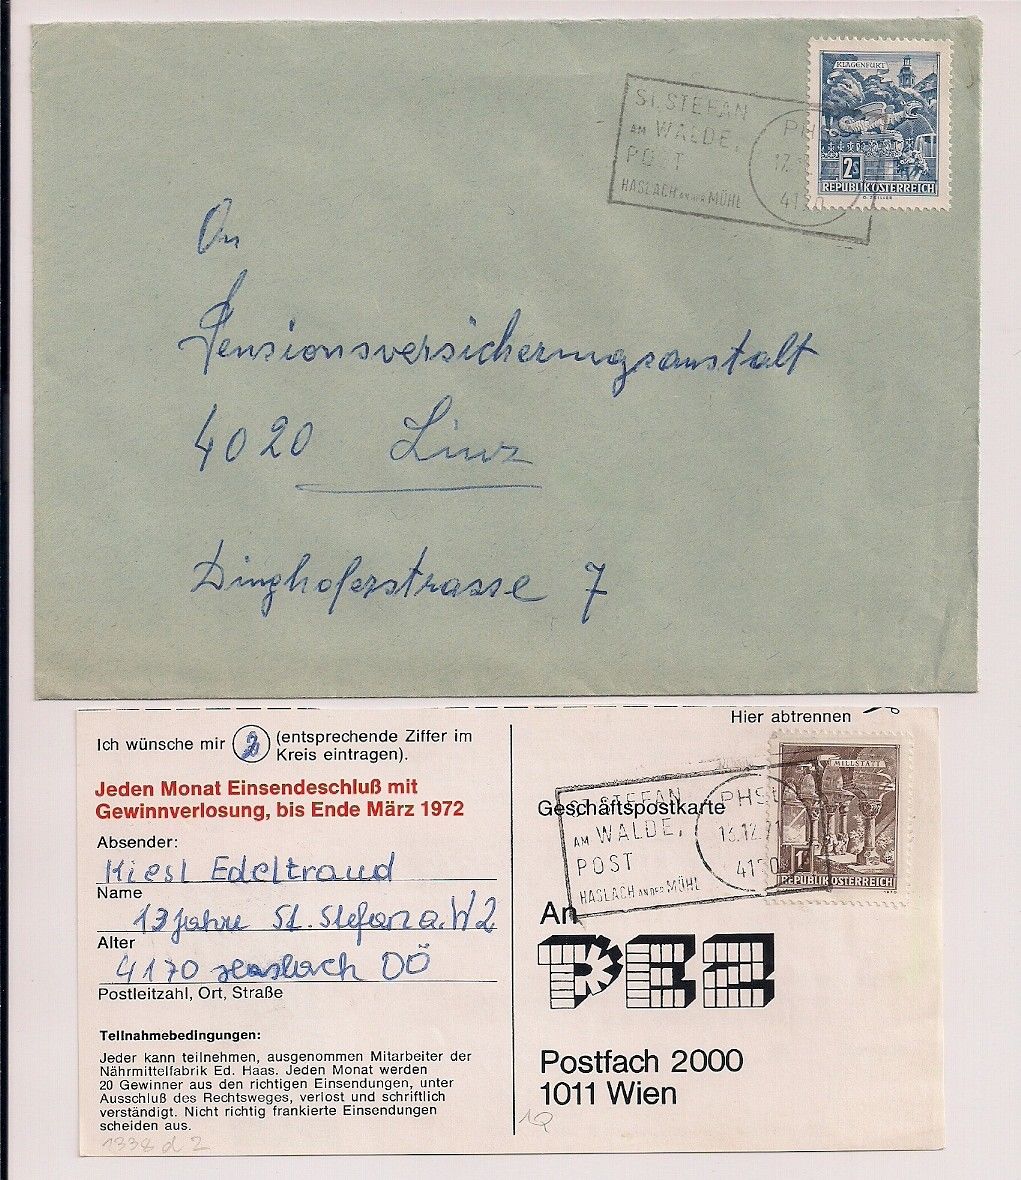 KLAGENFURT
2S
REPUBLIK ÖSTERREICH
ST. STEFAN
AM WALDE,
POST
HASLACH AN DER MÜHL
PHS
17.
4170
An
Pensionsversicherungsanstalt
4020 Linz
Dinghoferstrasse 7
Hier abtrennen
Ich wünsche mir 2 (entsprechende Ziffer im
Kreis eintragen).
Jeden Monat Einsendeschluß mit
Gewinnverlosung, bis Ende März 1972
Absender:
Hiesl Edeltraud
Name
13 Jahre St. Stefan a. W 2
Alter
4170 Haslach OÖ
Postleitzahl, Ort, Straße
Teilnahmebedingungen:
Jeder kann teilnehmen, ausgenommen Mitarbeiter der
Nährmittelfabrik Ed. Haas. Jeden Monat werden
20 Gewinner aus den richtigen Einsendungen, unter
Ausschluß des Rechtsweges, verlost und schriftlich
verständigt. Nicht richtig frankierte Einsendungen
scheiden aus.
1338 d 2
MILLSTATT
1S
REPUBLIK ÖSTERREICH
Geschäftspostkarte
ST. STEFAN
AM WALDE,
POST
HASLACH AN DER MÜHL
PHST
13.12.71
4170
An
PEZ
Postfach 2000
1011 Wien